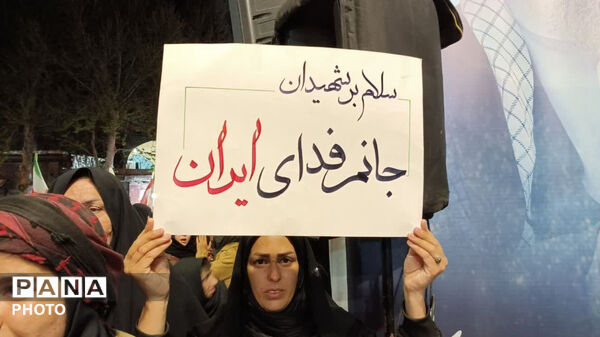 سلام بر شهیدان
جانم فدای ایران
PANA
PHOTO